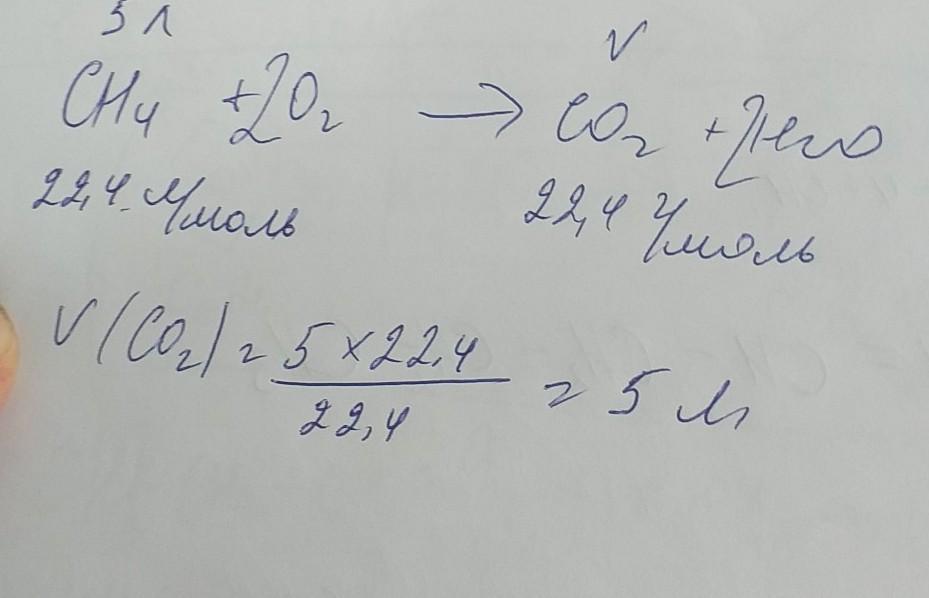 5 л V
CH₄ + 2O₂ → CO₂ + 2H₂O
22,4 л/моль 22,4 л/моль
V(CO₂) = 5 × 22,4 / 22,4 = 5 л